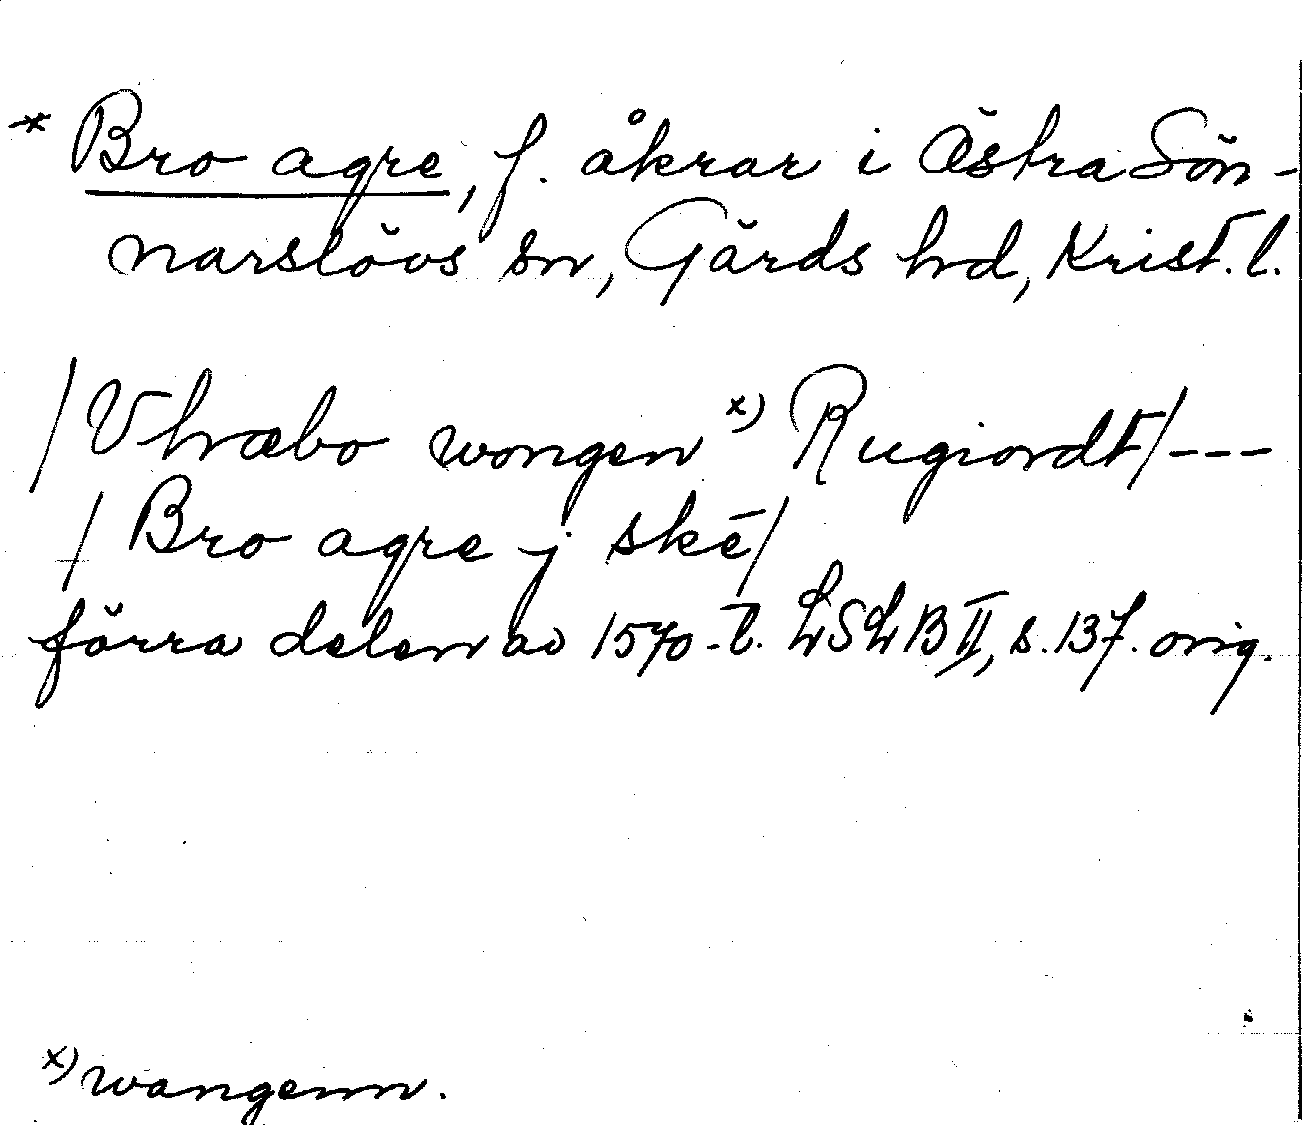 * Bro agre, f. åkrar i Östra Sön-
narslövs sn, Gärds hd, Krist. l.
/Vhræbo wongen x) Rugiordt/ ---
/ Bro agre j skē/
förra delen av 1570-t. LSLB II, s. 137. orig.
x) wangenn.